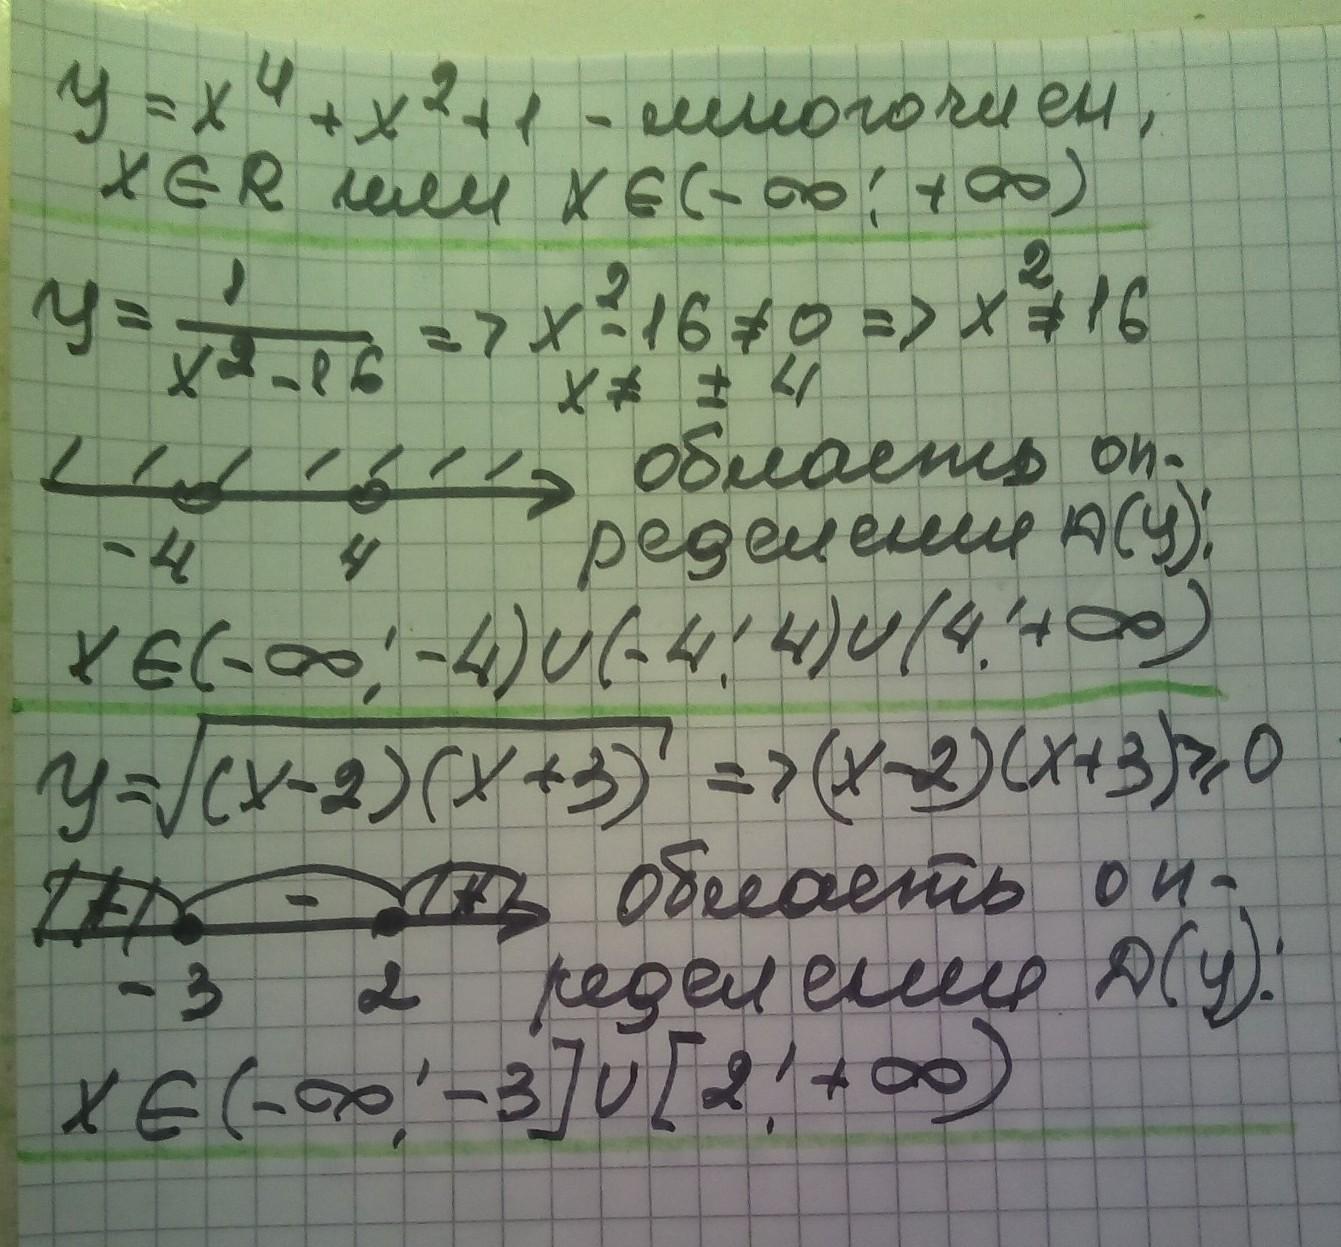 y = x⁴ + x² + 1 - многочлен,
x ∈ R или x ∈ (-∞; +∞)
y = 1/(x² - 16) => x² - 16 ≠ 0 => x² ≠ 16
x ≠ ± 4
область оп-
-4 4 ределения D(y):
x ∈ (-∞; -4) ∪ (-4; 4) ∪ (4; +∞)
y = √((x-2)(x+3)) => (x-2)(x+3) ≥ 0
+ - + область оп-
-3 2 ределения D(y):
x ∈ (-∞; -3] ∪ [2; +∞)